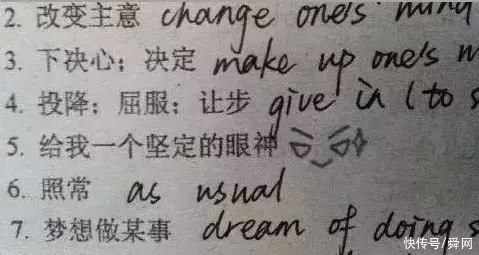 2. 改变主意 change one's mind
3. 下决心；决定 make up one's
4. 投降；屈服；让步 give in (to s
5. 给我一个坚定的眼神
6. 照常 as usual
7. 梦想做某事 dream of doing s
快传号/舜网